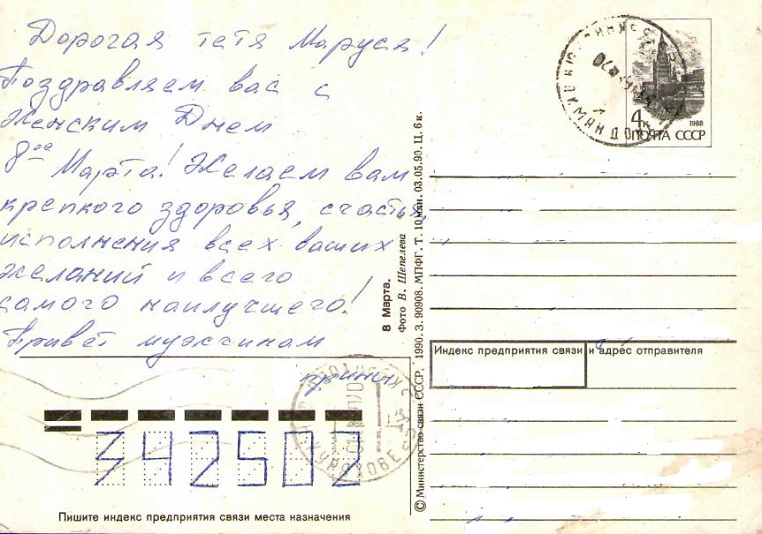 Дорогая тетя Маруся!
Поздравляем вас с
Женским Днем
8ое Марта! Желаем вам
крепкого здоровья, счастья,
исполнения всех ваших
желаний и всего
самого наилучшего!
Привет мужчинам
342502
Пишите индекс предприятия связи места назначения
8 Марта.
Фото В. Шепелева
© Министерство связи СССР, 1990. З. 90908. МПФГ. Т. 10 млн. 03.05.90. Ц. 6 к.
4к
1988
ПОЧТА СССР
Индекс предприятия связи и адрес отправителя